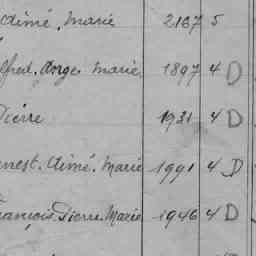 Aimé, Marie 2167 5
lfred, Ange, Marie 1897 4 D
Pierre 1931 4 D
rnest, Aimé, Marie 1991 4 D
rançois, Pierre, Marie 1946 4 D